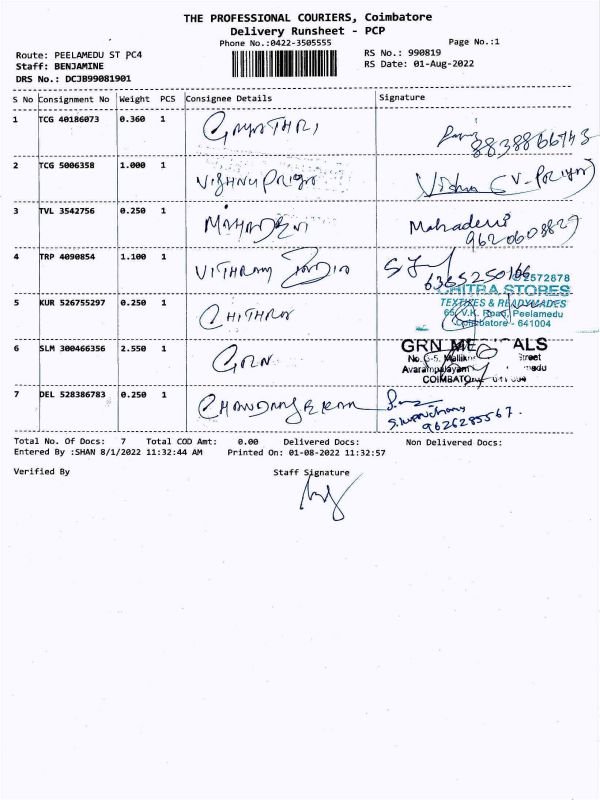 THE PROFESSIONAL COURIERS, Coimbatore
Delivery Runsheet - PCP
Phone No.:0422-3505555 Page No.:1
Route: PEELAMEDU ST PC4 RS No.: 990819
Staff: BENJAMINE RS Date: 01-Aug-2022
DRS No.: DCJB99081901
S No Consignment No Weight PCS Consignee Details Signature
1 TCG 40186073 0.360 1 GAYATHRI 8838866743
2 TCG 5006358 1.000 1 VISHNUPRIYA Vishnu (V-Priya)
3 TVL 3542756 0.250 1 MAHADEVI Mahadevi
9620608829
4 TRP 4090854 1.100 1 VITHRAM 6365250166
2572878
CHITRA STORES
5 KUR 526755297 0.250 1 CHITHRA TEXTILES & READYMADES
65, V.K. Road, Peelamedu
Coimbatore - 641004
6 SLM 300466356 2.550 1 GRN GRN MEDICALS
No. Street
Avarampalayam
COIMBATORE
7 DEL 528386783 0.250 1 CHANDRASEKAR
9626285567.
Total No. Of Docs: 7 Total COD Amt: 0.00 Delivered Docs: Non Delivered Docs:
Entered By :SHAN 8/1/2022 11:32:44 AM Printed On: 01-08-2022 11:32:57
Verified By Staff Signature